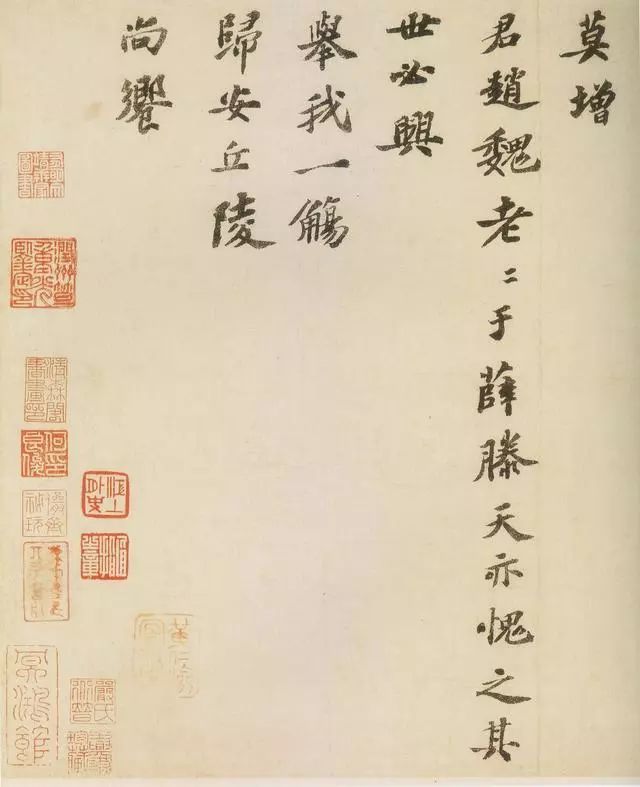 莫增
君趙魏老二于薛滕天亦愧之其
世必興
舉我一觴
歸安丘陵
尚饗